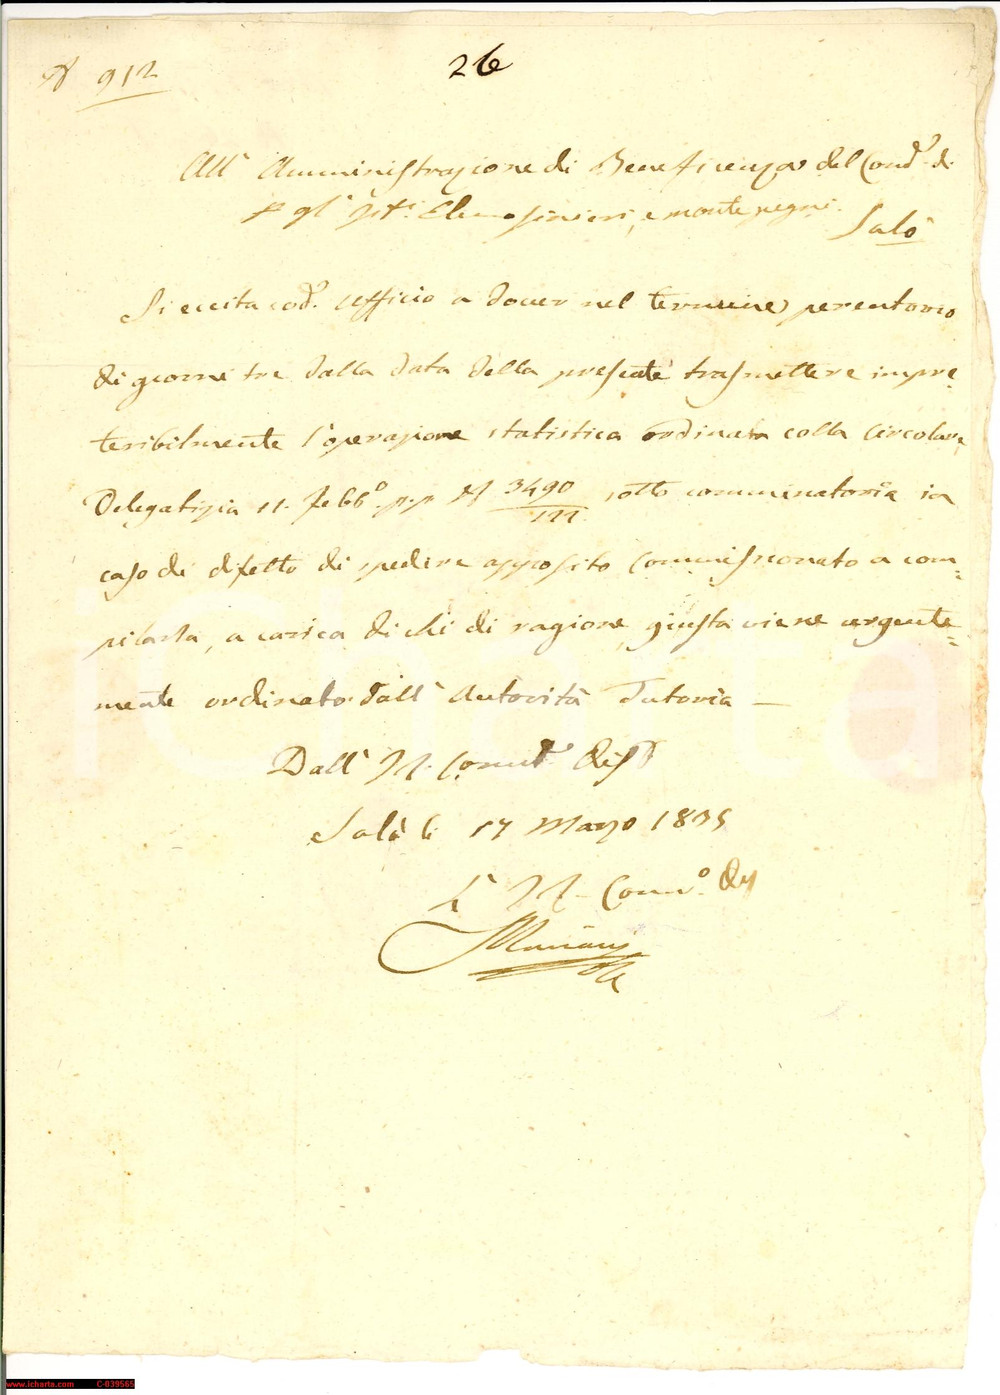 N 912
26
All' Amministrazione di Beneficenza del Cond.e di
p gl' Ist.i Elemosinieri, e monte pegni.
Salò
Si eccita cod.o Ufficio a dover nel termine perentorio
di giorni tre dalla data della presente trasmettere impre
teribilmente l'operazione statistica ordinata colla Circolare
Delegatizia 11. Febb.o p.p. N 3490/111 sotto comminatoria in
caso di difetto di spedire apposito Commissionato a com=
pilarla, a carico di chi di ragione, giusta viene urgente=
mente ordinato dall' Autorità Tutoria —
Dall' I.R. Comm.o Dist
Salò li 17 Marzo 1835
L' I.R. Comm.o Dis
www.icharta.com C-039565